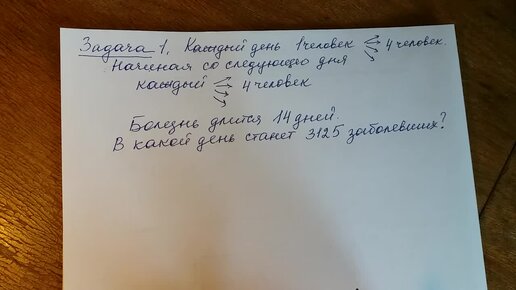 Задача 1. Каждый день 1 человек 4 человек.
Начиная со следующего дня
каждый 4 человек
Болезнь длится 14 дней.
В какой день станет 3125 заболевших?